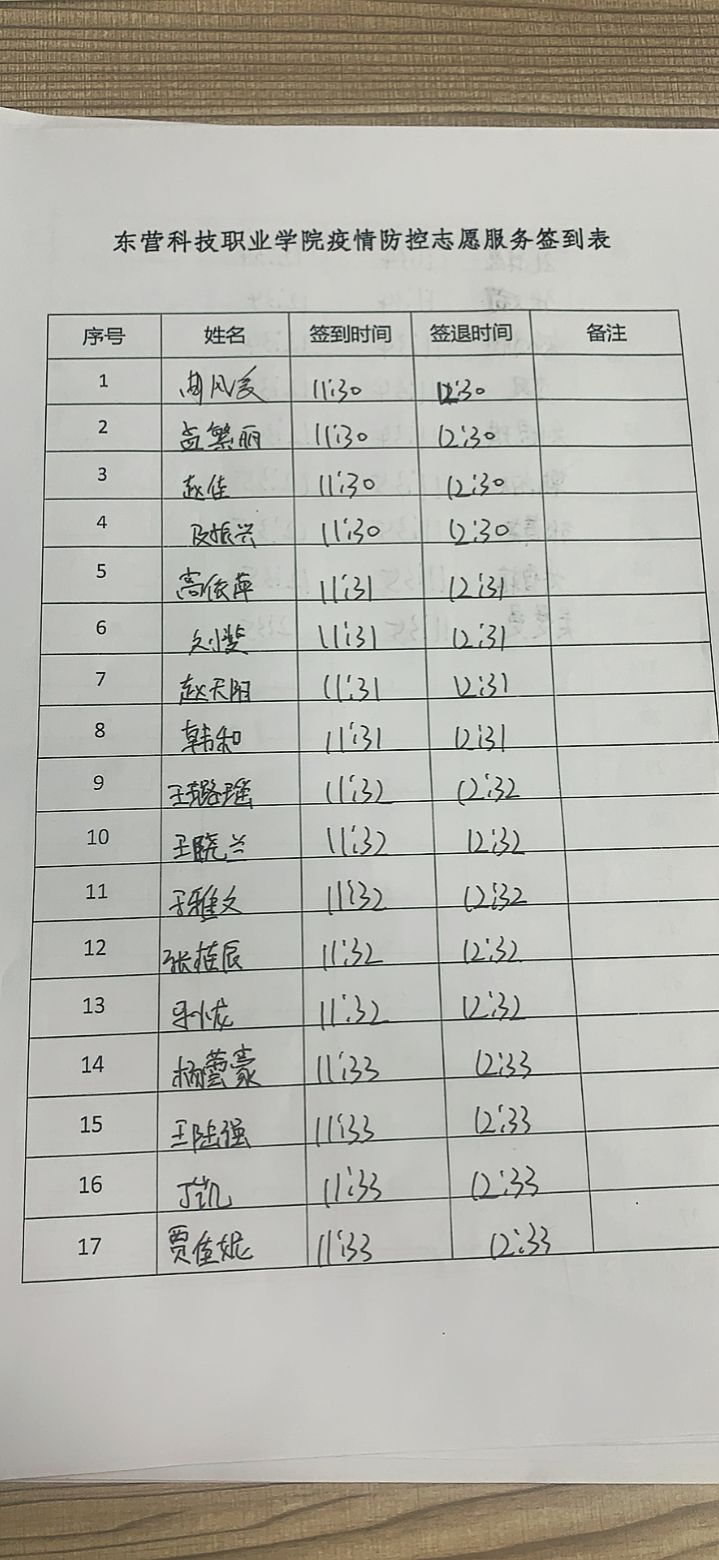 东营科技职业学院疫情防控志愿服务签到表
序号 姓名 签到时间 签退时间 备注
1 11:30 12:30
2 孟繁丽 11:30 12:30
3 赵佳 11:30 12:30
4 及振兴 11:30 12:30
5 高依萍 11:31 12:31
6 11:31 12:31
7 赵天阳 11:31 12:31
8 韩和 11:31 12:31
9 王璐瑶 11:32 12:32
10 王晓兰 11:32 12:32
11 于雅文 11:32 12:32
12 11:32 12:32
13 11:32 12:32
14 11:33 12:33
15 王陆强 11:33 12:33
16 丁凯 11:33 12:33
17 贾佳妮 11:33 12:33